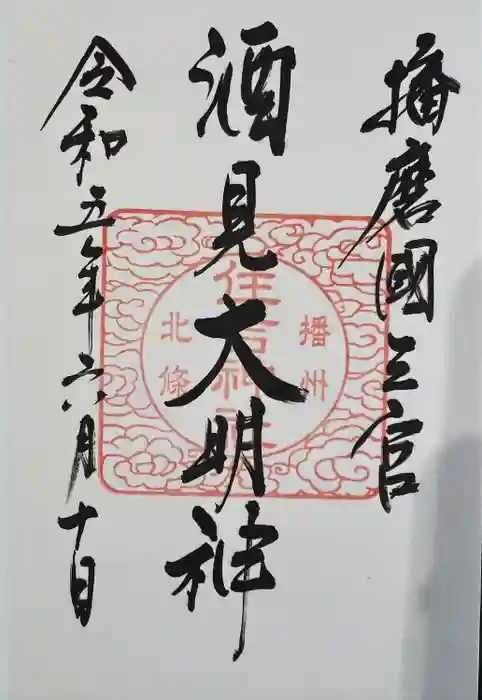 播磨國三宮
酒見大明神
令和五年六月十日
播州
住吉神社
北條